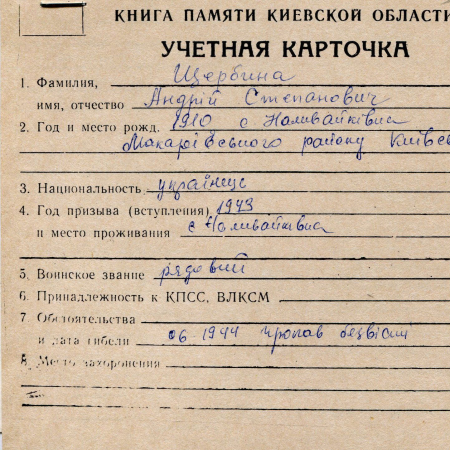 КНИГА ПАМЯТИ КИЕВСКОЙ ОБЛАСТИ
УЧЕТНАЯ КАРТОЧКА
1. Фамилия, Щербина
имя, отчество Андрій Степанович
2. Год и место рожд. 1910 с Наливайківка
Макарівського району Київсь
3. Национальность українець
4. Год призыва (вступления) 1943
и место проживания с Наливайківка
5. Воинское звание рядовий
6. Принадлежность к КПСС, ВЛКСМ
7. Обстоятельства
и дата гибели 06 1944 пропав безвісти
8. Место захоронения